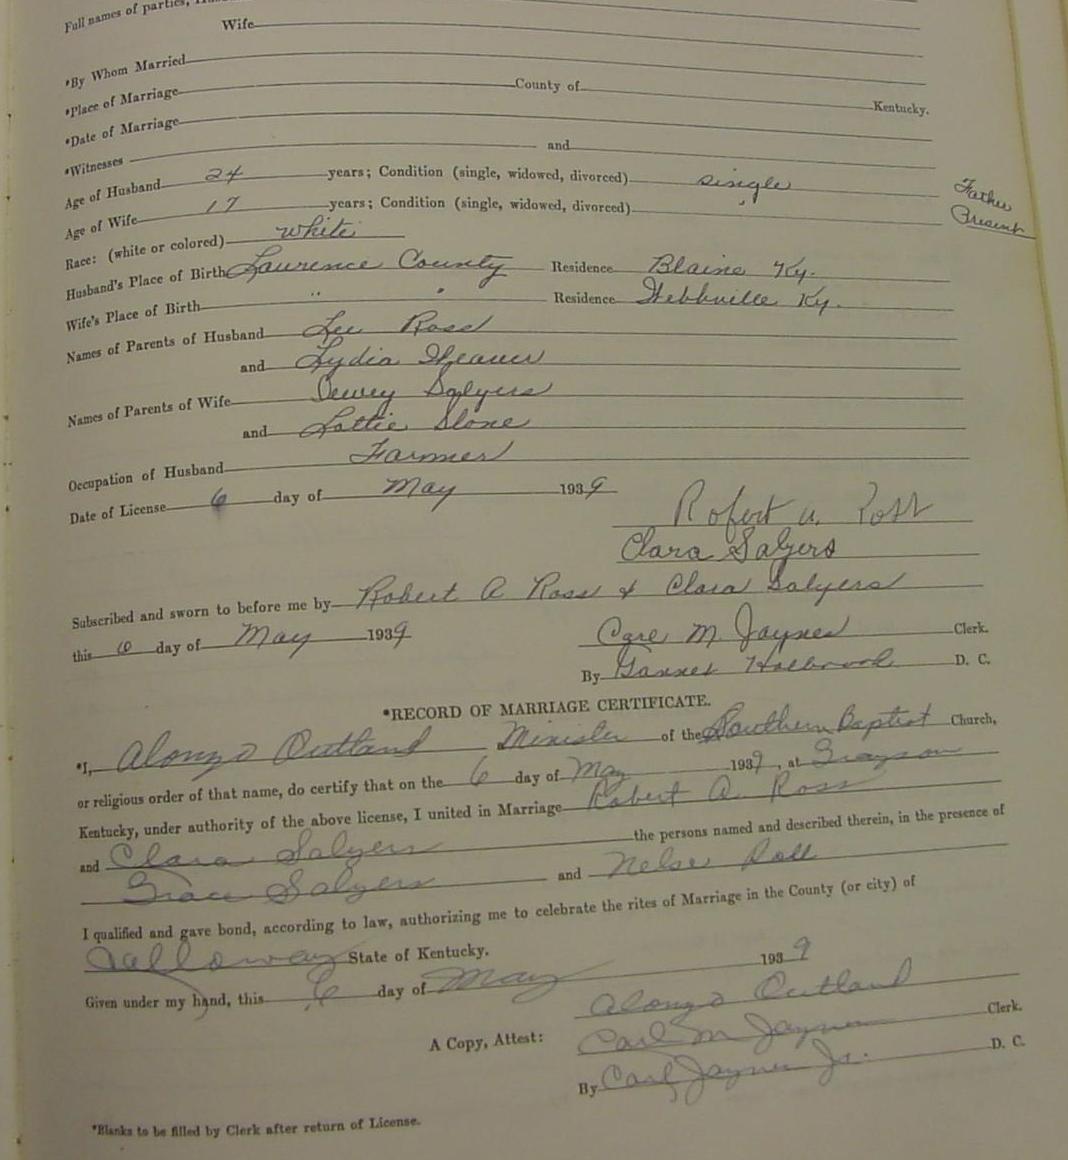 Full names of parties,
Wife
*By Whom Married
*Place of Marriage County of Kentucky.
*Date of Marriage
*Witnesses and
Age of Husband 24 years; Condition (single, widowed, divorced) single
Father
Age of Wife 17 years; Condition (single, widowed, divorced) "
Present
Race: (white or colored) white
Husband's Place of Birth Lawrence County Residence Blaine Ky.
Wife's Place of Birth " " Residence Webbville Ky.
Names of Parents of Husband Lee Ross
and Lydia
Names of Parents of Wife Dewey Salyers
and Lottie Slone
Occupation of Husband Farmer
Date of License 6 day of May 1939
Robert A. Ross
Clara Salyers
Subscribed and sworn to before me by Robert A Ross & Clara Salyers
this 6 day of May 1939 Carl M. Jaynes Clerk.
By Holbrook D. C.
*RECORD OF MARRIAGE CERTIFICATE.
*I, Alonzo Outland Minister of the Southern Baptist Church,
or religious order of that name, do certify that on the 6 day of May 1939, at Grayson
Kentucky, under authority of the above license, I united in Marriage Robert A. Ross
and Clara Salyers the persons named and described therein, in the presence of
Grace Salyers and
I qualified and gave bond, according to law, authorizing me to celebrate the rites of Marriage in the County (or city) of
Calloway State of Kentucky.
Given under my hand, this 6 day of May 1939
Alonzo Outland
A Copy, Attest: Carl M Jaynes Clerk.
By Carl Jaynes Jr. D. C.
*Blanks to be filled by Clerk after return of License.